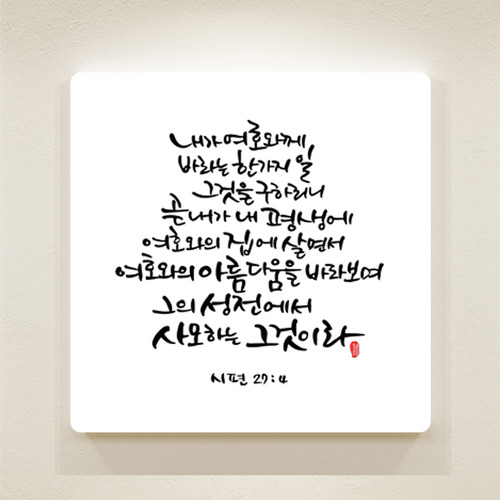 내가 여호와께
바라는 한가지 일
그것을 구하리니
곧 내가 내 평생에
여호와의 집에 살면서
여호와의 아름다움을 바라보며
그의 성전에서
사모하는 그것이라
시편 27:4